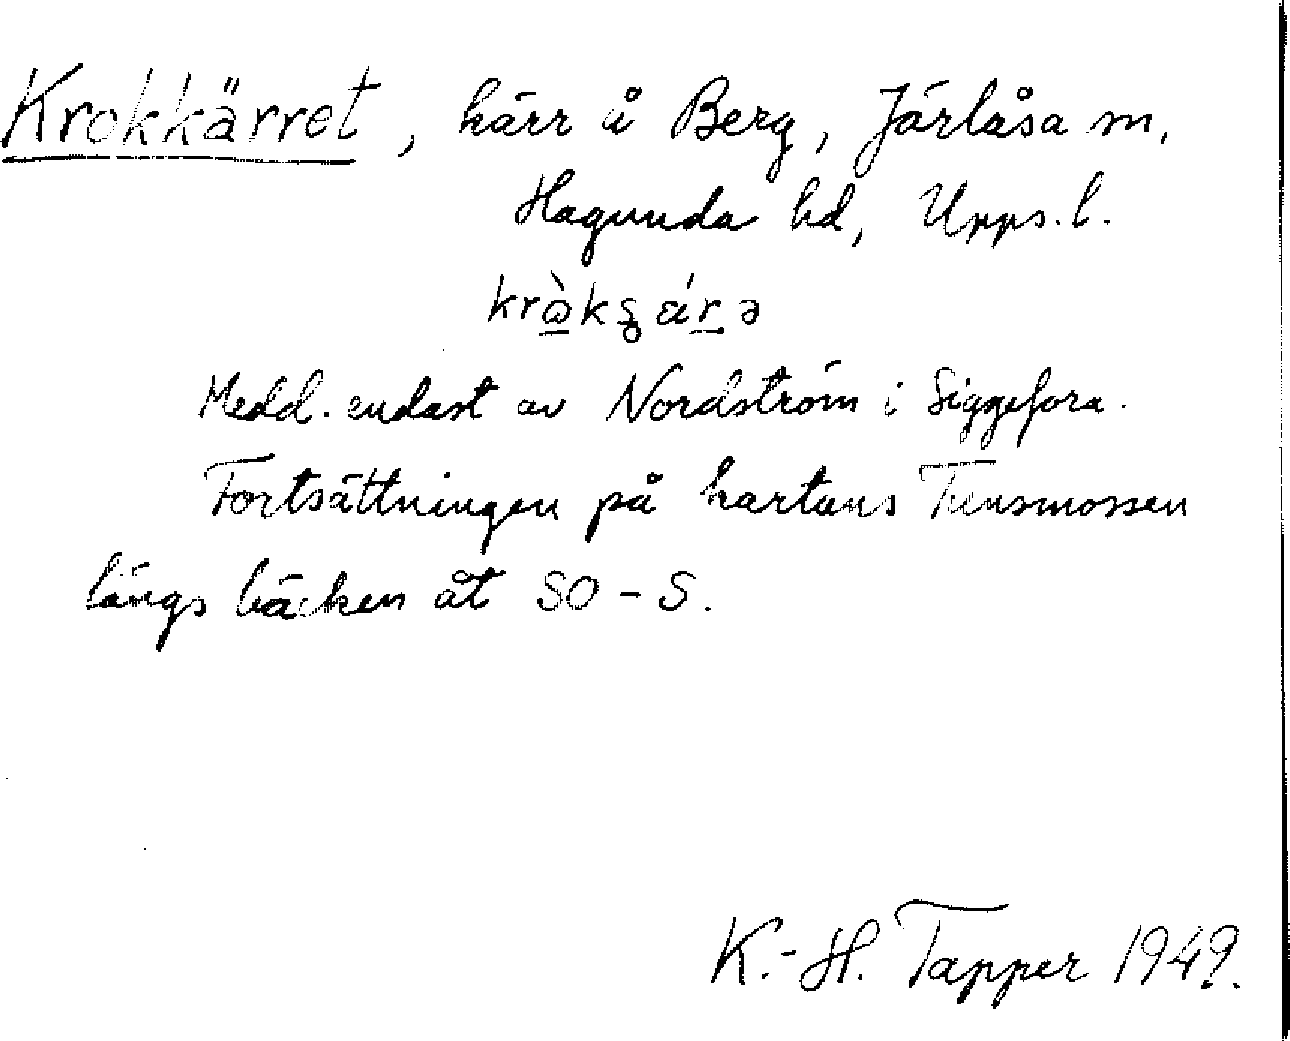 Krokkärret, kärr å Berg, Järlåsa sn,
Hagunda hd, Upps. l.
Medd. endast av Nordström i Siggefora.
Fortsättningen på kartans Tunsmossen
längs bäcken åt SO-S.
K.-H. Tapper 1949.